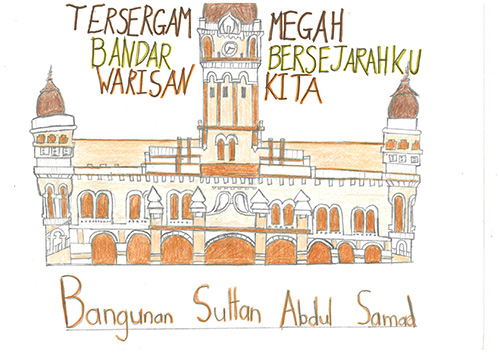 TERSERGAM MEGAH
BANDAR BERSEJARAHKU
WARISAN KITA
Bangunan Sultan Abdul Samad